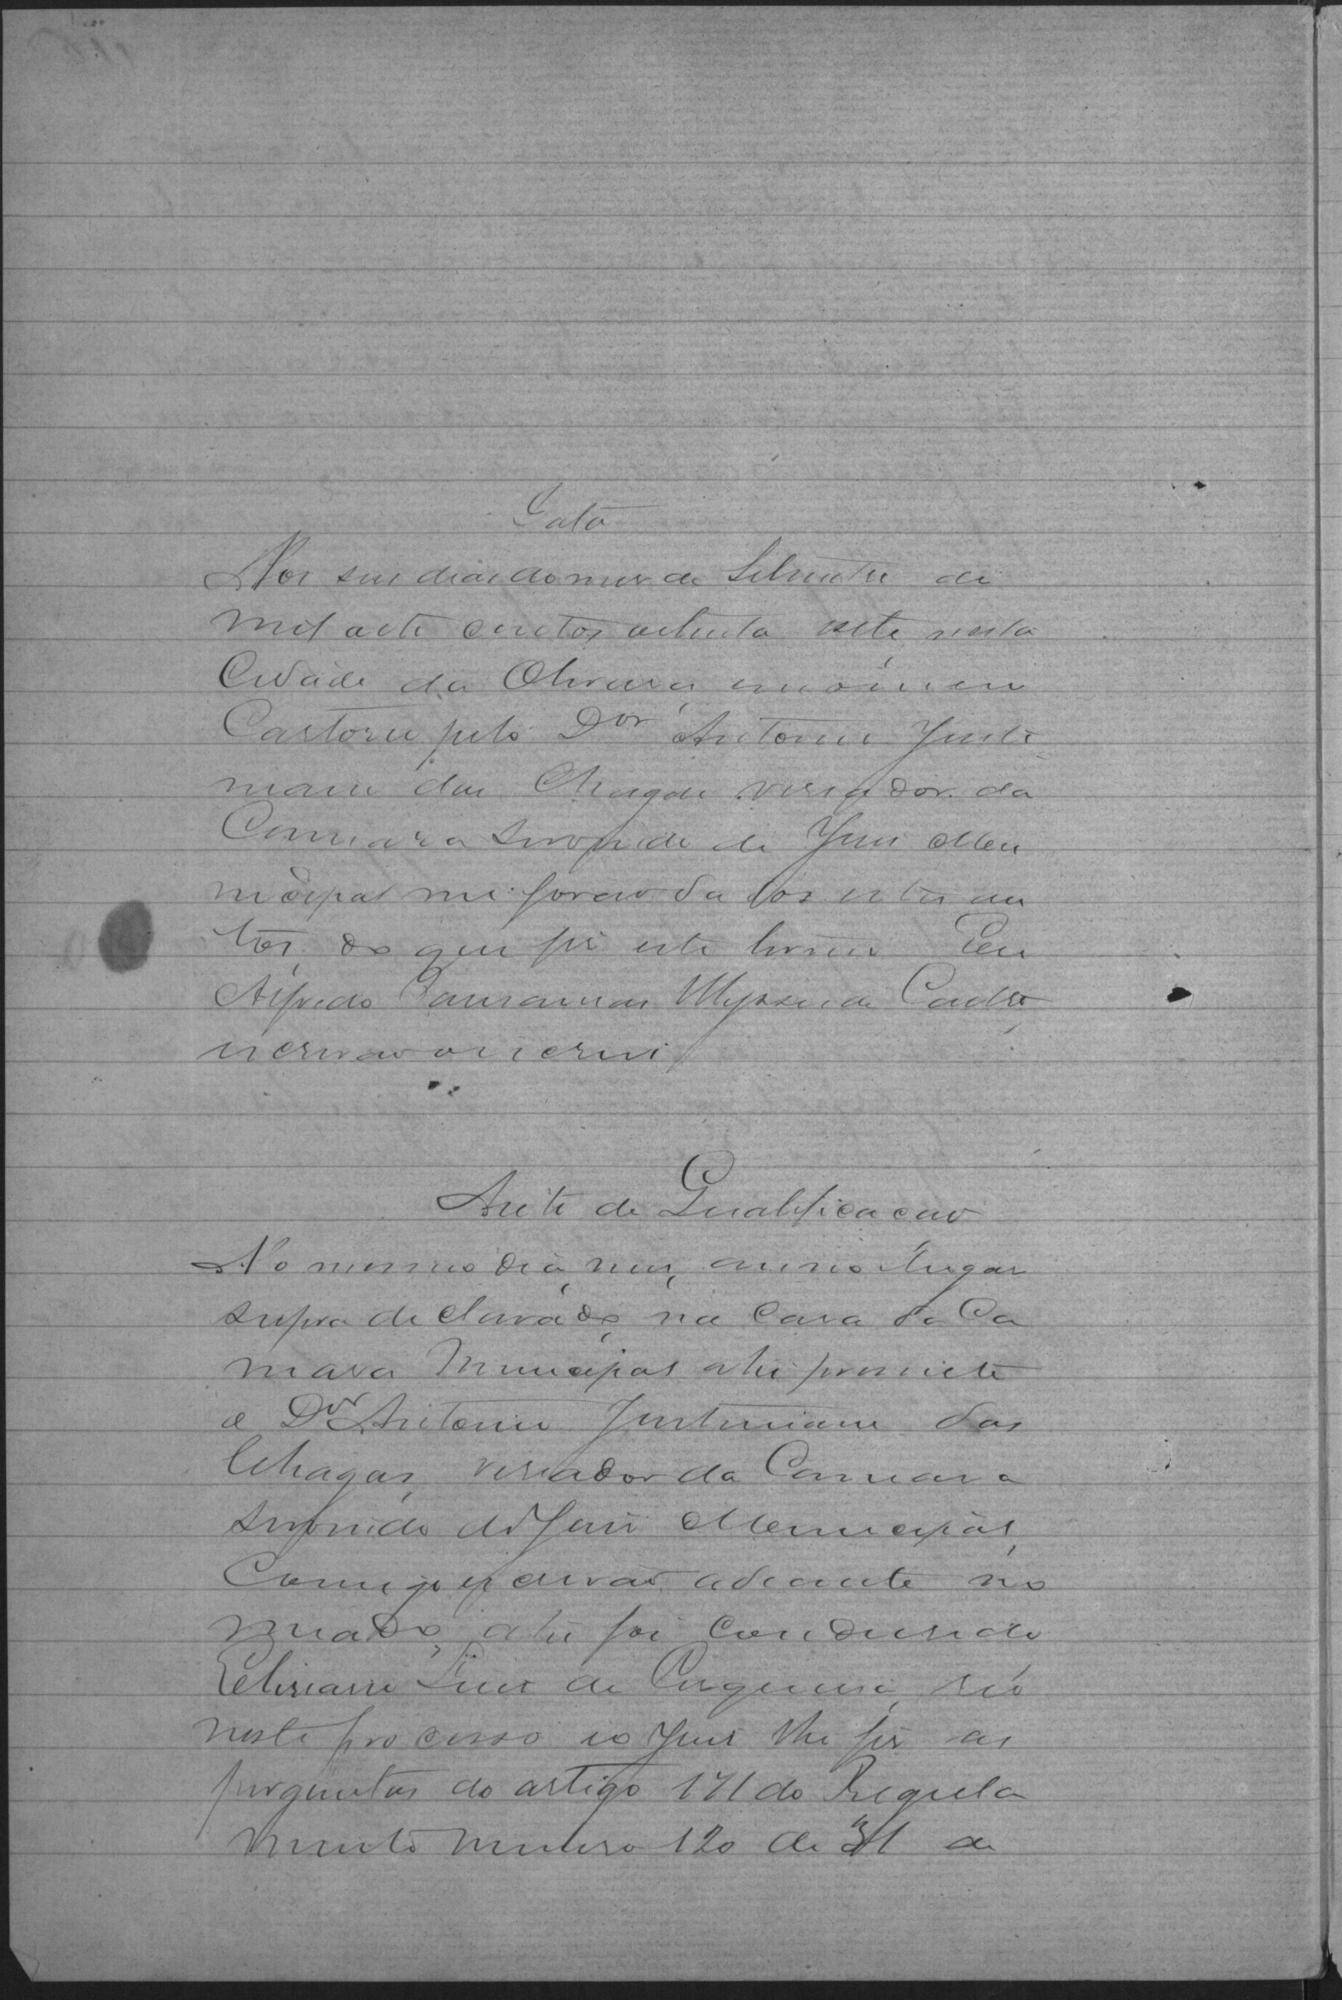 Data
Aos seis dias do mes de Setembro de
mil oito centos oitenta sete nesta
Cidade da Oliveira, em o meu
Cartorio pelo Dor Antonio Justi
niano das Chagas vereador da
Camara servindo de Juis Mu
nicipal me forão dados estes au
tos, do que fis este termo Eu
Alfredo Ulysses de Castro
escrivão o escrevi
Auto de Qualificacão
No mesmo dia, mes, anno e lugar
supra declarado, na casa da Ca
mara Municipal ahi presente
o Dor Antonio Justiniano das
Chagas, vereador da Camara
servindo de Juis Municipal,
Comigo escrivão adiante no
meado, ahi foi condusido
Luis de Cirqueira, réo
neste processo e o Juis lhe fes as
perguntas do artigo 171 do Regula
mento numero 120 de 31 de